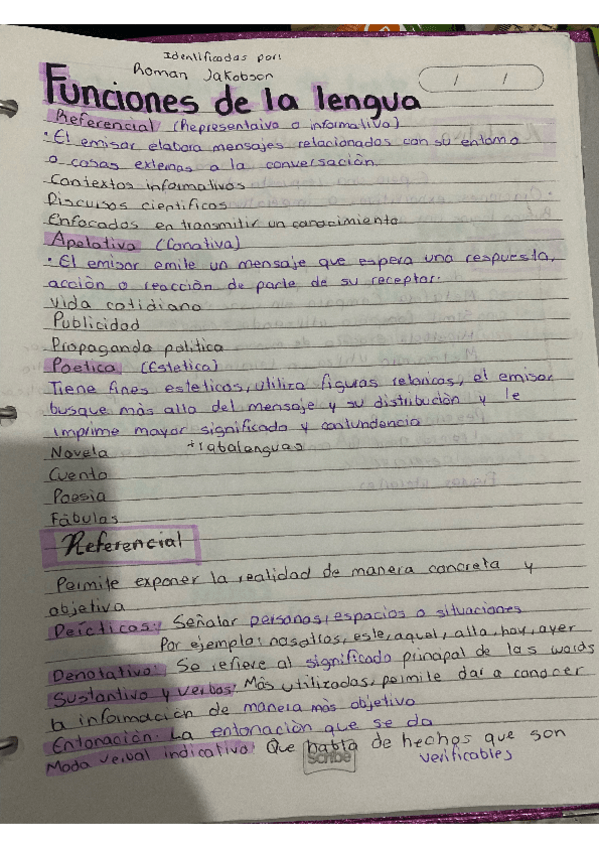 Identificadas por:
Roman Jakobson
/ /
Funciones de la lengua
Referencial (Representaiva o informativa)
• El emisor elabora mensajes relacionados con su entorno
o cosas externas a la conversación
Contextos informativos
Discursos cientificos
Enfocados en transmitir un conocimiento
Apelativa (Conativa)
• El emisor emite un mensaje que espera una respuesta,
acción o reacción de parte de su receptor.
Vida cotidiana
Publicidad
Propaganda politica
Poetica (Estetica)
Tiene fines esteticos, utiliza figuas retoricas, el emisor
busque más alla del mensaje y su distribución y le
imprime mayor significado y contundencia
Novela trabalenguas
Cuento
Poesia
Fábulas
Referencial
Permite exponer la realidad de manera concreta y
objetiva
Deícticos: Señalar personas, espacios o situaciones
Por ejemplo: nosotros, este, aquel, alla, hoy, ayer
Denotativo: Se refiere al significado principal de las words
Sustantivo y verbos: Más utilizadas, permite dar a conocer
la información de manera más objetivo
Entonación: La entonación que se da
Modo verbal indicativo: Que habla de hechos que son
verificables
Scribe